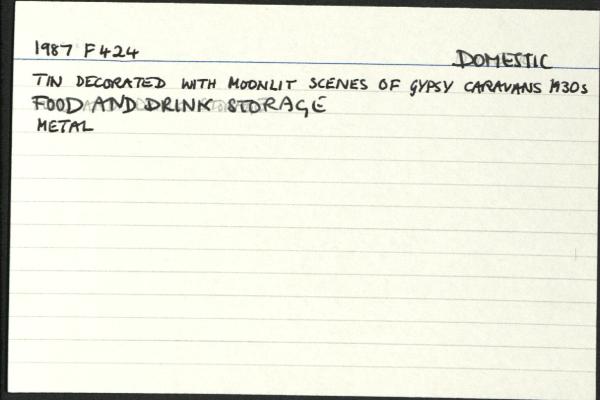 1987 F424
DOMESTIC
TIN DECORATED WITH MOONLIT SCENES OF GYPSY CARAVANS 1930s
FOOD AND DRINK STORAGE
METAL